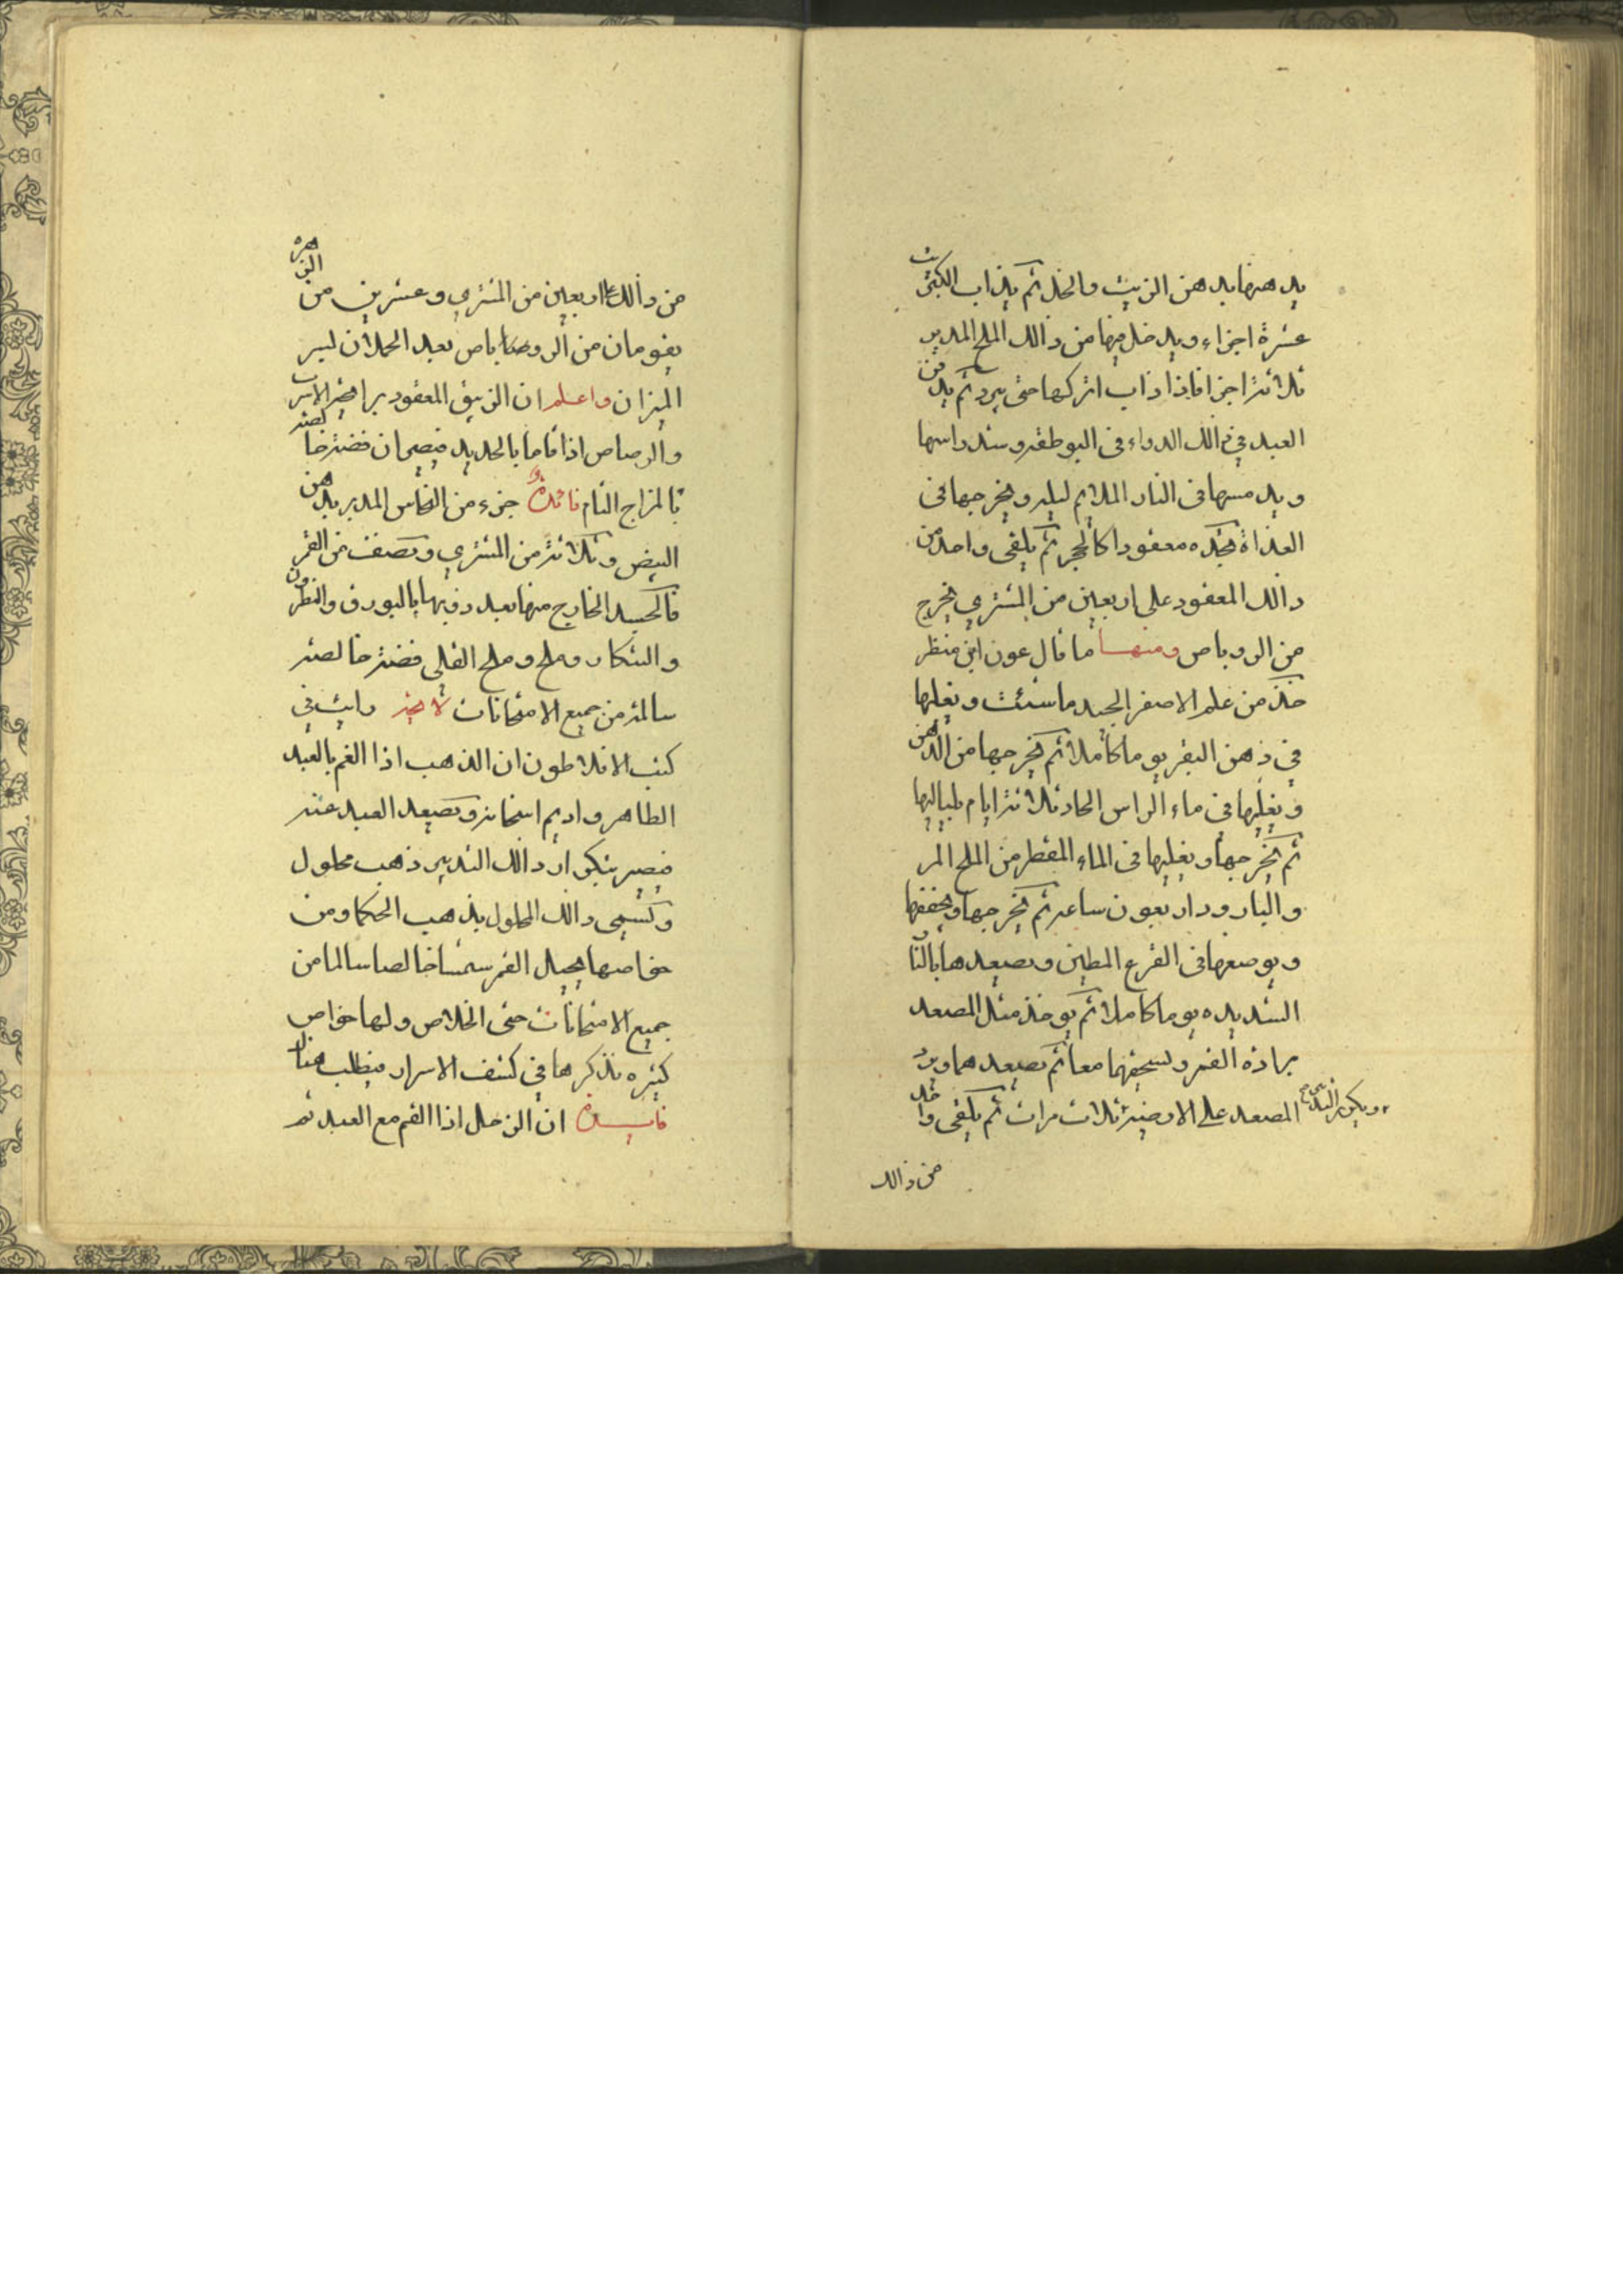 يدهنها بدهن الزيت والخل ثم يذاب الكبريت
عشرة اجزاء ويدخل فيها من ذالك الملح المدبر
ثلاثة اجزا فاذا ذاب اتركها حتى يبرد ثم يدفن
العبد في ذالك الدواء في البوطقه وسد راسها
ويدمسها في النار الملايم ليله ويخرجها في
الغداة تجده معقودا كالحجر ثم يلقى واحد من
ذالك المعقود على اربعين من المشتري يخرج
من الروباص ومنها ما قال عون ابن منظر
خذ من علم الاصفر الجيد ما شئت ويغليها
في دهن البقر يوما كاملا ثم يخرجها من الدهن
ويغليها في ماء الراس الحاد ثلاثة ايام بلياليها
ثم يخرجها ويغليها في الماء المقطر من الملح المر
والبارود اربعون ساعه ثم يخرجها ويجففها
ويوضعها في القرع المطين ويصعدها بالنار
الشديده يوما كاملا ثم يوخذ مثل المصعد
برادة القمر ويسحقهما معا ثم يصعدهما ويرد
المصعد على الارضيه ثلاث مرات ثم يلقى واحد
ويكرر التدبير
من ذالك
من ذالك على اربعين من المشتري وعشرين من الزهره
يقومان من الروباص بعد الحملان لسر
الميزان واعلم ان الزيبق المعقود برايحة الاسرب
والرصاص اذا قاما بالحديد فيصيران فضة خالصة
بالمزاج التام فائدة جزء من النحاس المدبر بدهن
البيض وثلاثة من المشتري ونصف من القمر
فالجسد الخارج منها بعد ذوبها بالبورق والنطرون
والتنكار وملح وملح القلي فضة خالصة
سالمة من جميع الامتحانات لاخيه رايت في
كتب الافلاطون ان الذهب اذا الغم بالعبد
الطاهر واديم اسحانه وتصعيد العبد عنه
فيصير بتكرار ذالك التدبير ذهب محلول
وتسمى ذالك المحلول بذهب الحكما ومن
خواصها يحيل القمر شمسا خالصا سالما من
جميع الامتحانات حتى الخلاص ولها خواص
كثيره نذكرها في كشف الاسرار فيطلب هناك
فايدة ان الزحل اذا الغم مع العبد ثم